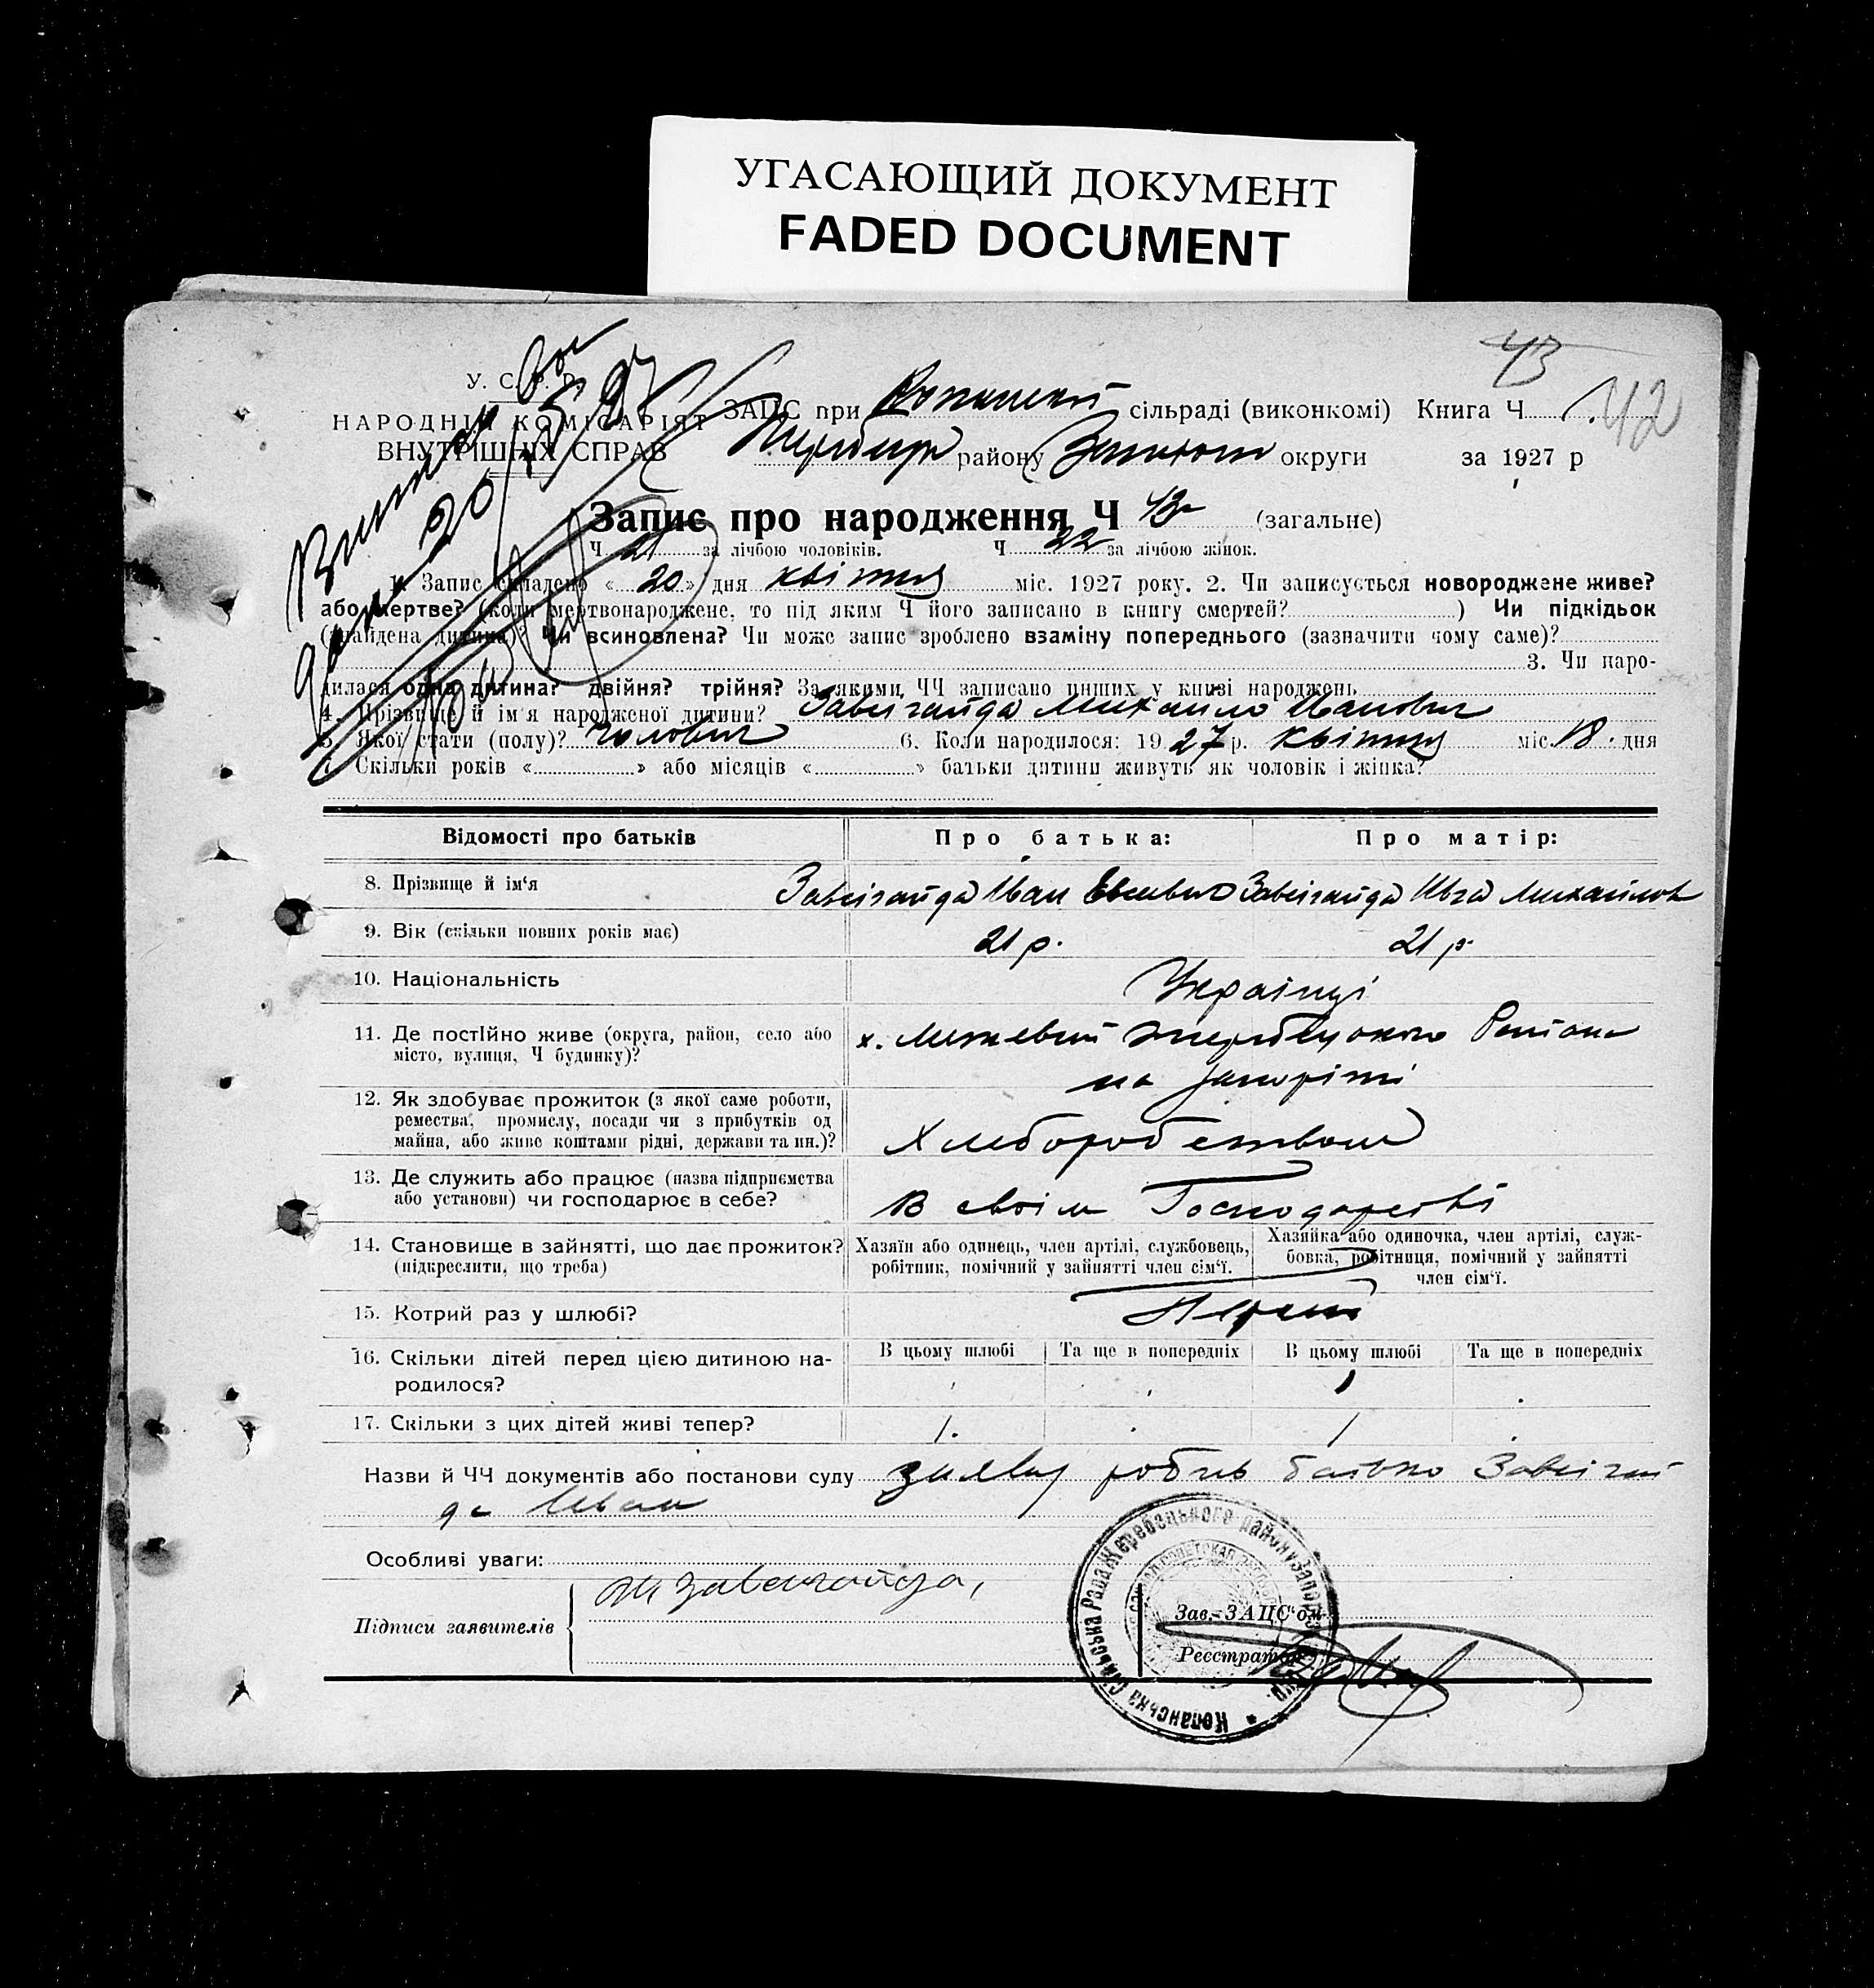 УГАСАЮЩИЙ ДОКУМЕНТ
FADED DOCUMENT
43
42
У. С. Р. Р.
НАРОДНІЙ КОМІСАРІЯТ
ВНУТРІШНІХ СПРАВ
ЗАЦС при Копанській сільраді (виконкомі) Книга Ч 1.
району округи за 1927 р
Запис про народження Ч 43 (загальне)
Ч 21 за лічбою чоловіків. Ч 22 за лічбою жінок.
1. Запис складено «20» дня квітня міс. 1927 року. 2. Чи записується новороджене живе?
або мертве? (коли мертвонароджене, то під яким Ч його записано в книгу смертей? ) Чи підкідьок
(знайдена дитина)? Чи всиновлена? Чи може запис зроблено взаміну попереднього (зазначити чому саме)?
3. Чи наро-
дилася одна дитина? двійня? трійня? За якими ЧЧ записано инших у книзі народжень
4. Прізвище й ім'я народженої дитини? Завізгайда Михайло Иванович
5. Якої стати (полу)? чоловіч 6. Коли народилося: 1927 р. квітня міс. 18. дня
7. Скільки років « » або місяців « » батьки дитини живуть як чоловік і жінка?
Відомості про батьків Про батька: Про матір:
8. Прізвище й ім'я Завізгайда Иван Завізгайда Ивга Михайлов
9. Вік (скільки повних років має) 21 р. 21 р.
10. Національність Українці
11. Де постійно живе (округа, район, село або
місто, вулиця, Ч будинку)? х. Межевий Района
на Запоріжі
12. Як здобуває прожиток (з якої саме роботи,
ремества, промислу, посади чи з прибутків од
майна, або живе коштами рідні, держави та ин.)? Хлеборобством
13. Де служить або працює (назва підприємства
або установи) чи господарює в себе? В своім Господарстві
14. Становище в зайнятті, що дає прожиток?
(підкреслити, що треба)
Хазяїн або одинець, член артілі, службовець,
робітник, помічний у зайнятті член сім'ї.
Хазяйка або одиночка, член артілі, служ-
бовка, робітниця, помічний у зайнятті
член сім'ї.
15. Котрий раз у шлюбі? Перший
16. Скільки дітей перед цією дитиною на-
родилося?
В цьому шлюбі Та ще в попередніх В цьому шлюбі Та ще в попередніх
1
17. Скільки з цих дітей живі тепер? 1. 1
Назви й ЧЧ документів або постанови суду заяву робив батько Завізгай
да Иван
Особливі уваги:
Підписи заявителів
Зав.-ЗАЦС'ом
Реєстратор
Копанська Сільська Рада Жеребецького району Запорізької окр.